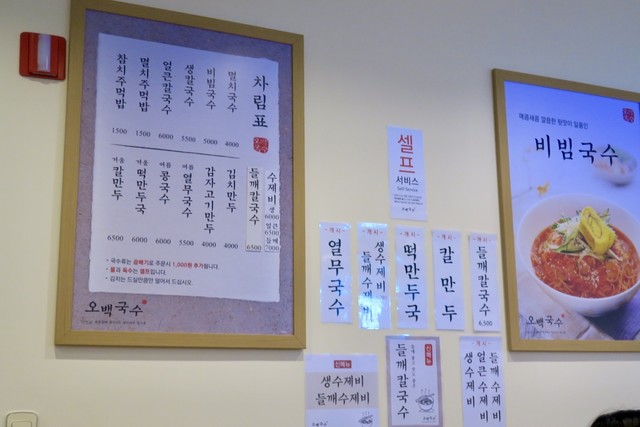 차림표
멸치국수 4000
비빔국수 5000
생칼국수 5500
얼큰칼국수 6000
멸치주먹밥 1500
참치주먹밥 1500
수제비
생 6000
얼큰 6500
들깨 7000
들깨칼국수 6500
김치만두 4000
감자고기만두 4000
여름 열무국수 5500
여름 콩국수 6000
겨울 떡만두국 6000
겨울 칼만두 6500
• 국수류는 곱빼기로 주문시 1,000원 추가됩니다.
• 물과 육수는 셀프입니다.
• 김치는 드실만큼만 덜어서 드십시오.
오백국수
셀프
서비스
Self Service
- 개시 -
열무국수
- 개시 -
생수제비
들깨수제비
- 개시 -
떡만두국
- 개시 -
칼만두
- 개시 -
들깨칼국수
6,500
신메뉴
생수제비
들깨수제비
신메뉴
들깨칼국수
- 개시 -
들깨수제비
얼큰수제비
생수제비
매콤새콤 깔끔한 뒷맛이 일품인
비빔국수
오백국수